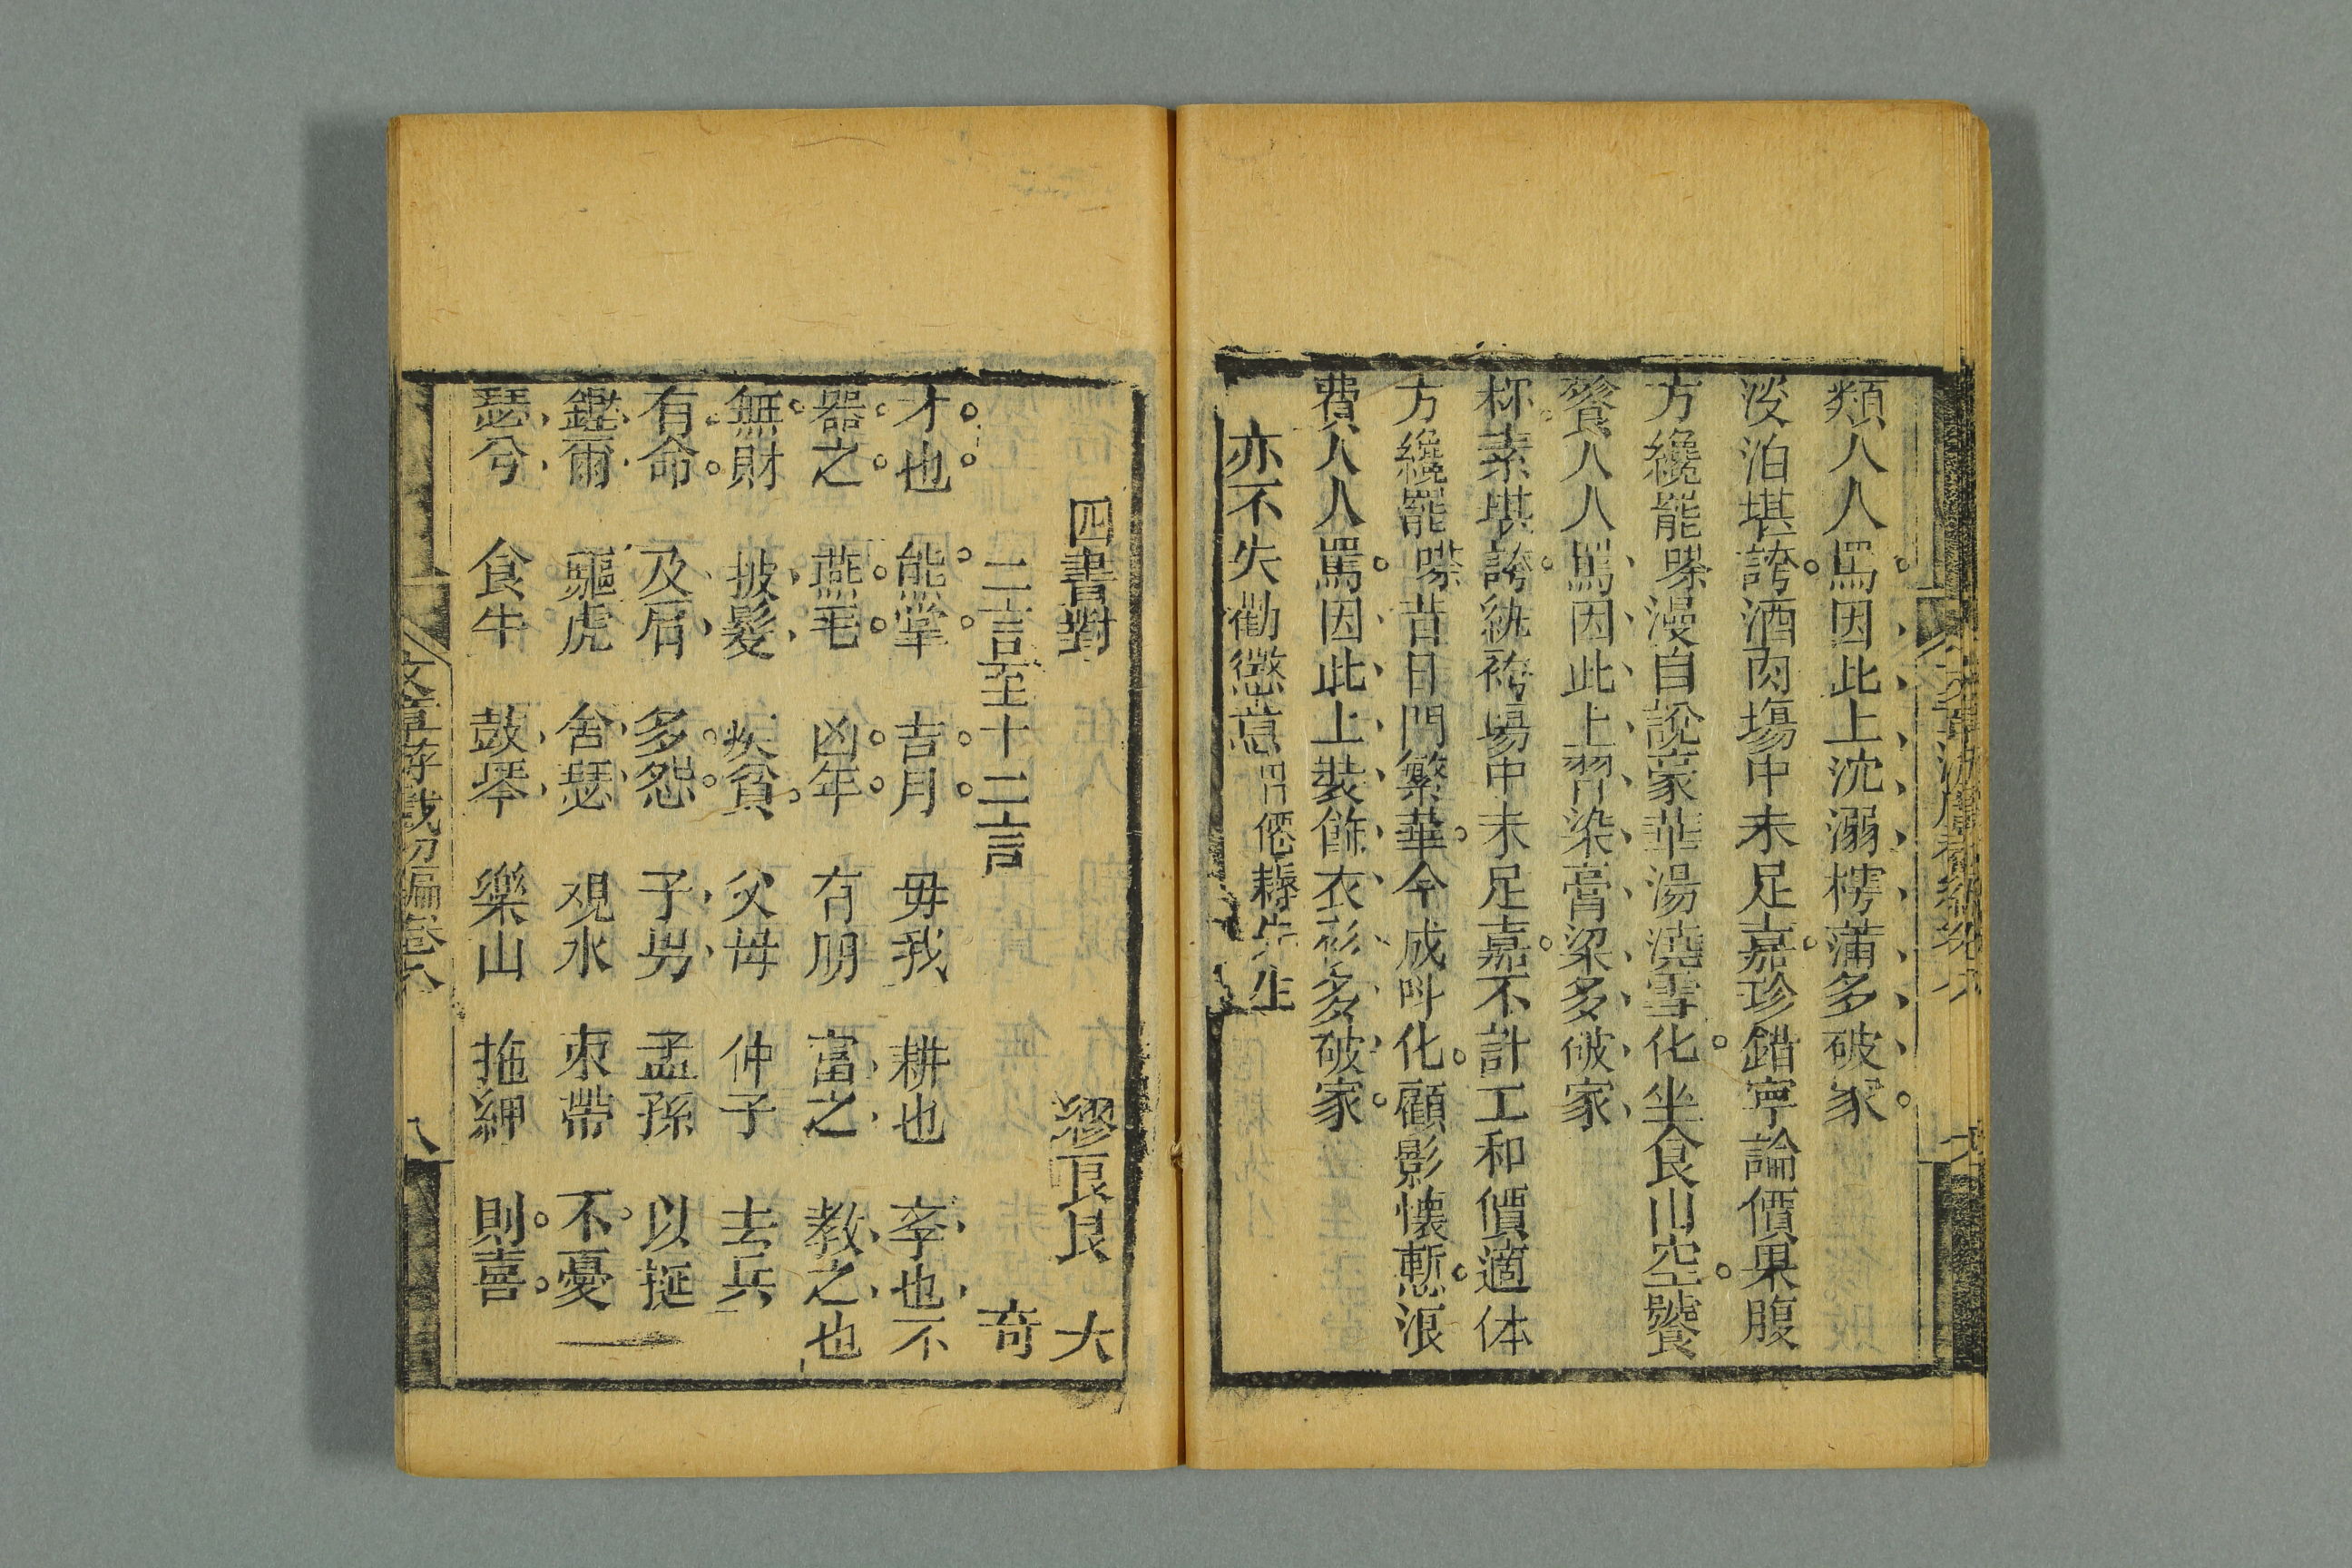 類人人罵因此上沈溺樗蒲多破家
淡泊堪誇酒肉場中未足嘉珍錯寧論價果腹
方纔罷嗏漫自說豪華湯澆雪化坐食山空饕
餮人人罵因此上習染膏粱多破家
㭉素堪誇紈袴場中未足嘉不計工和價適体
方纔罷嗏昔日門繁華今成叫化顧影懷慙浪
費人人罵因此上裝飾衣衫多破家
亦不失勸懲意 先生
四書對 繆艮 大
二言至十二言 奇
才也 熊掌 吉月 毋我 耕也 幸也不
器之 燕毛 凶年 有朋 富之 教之也
無財 披髮 疾貧 父母 仲子 去兵
有命 及肩 多怨 子男 孟孫 以挻
鏗爾 驅虎 舍瑟 觀水 束帶 不憂
瑟兮 食牛 鼓琴 樂山 拖紳 則喜
文章游戲初編卷六 八